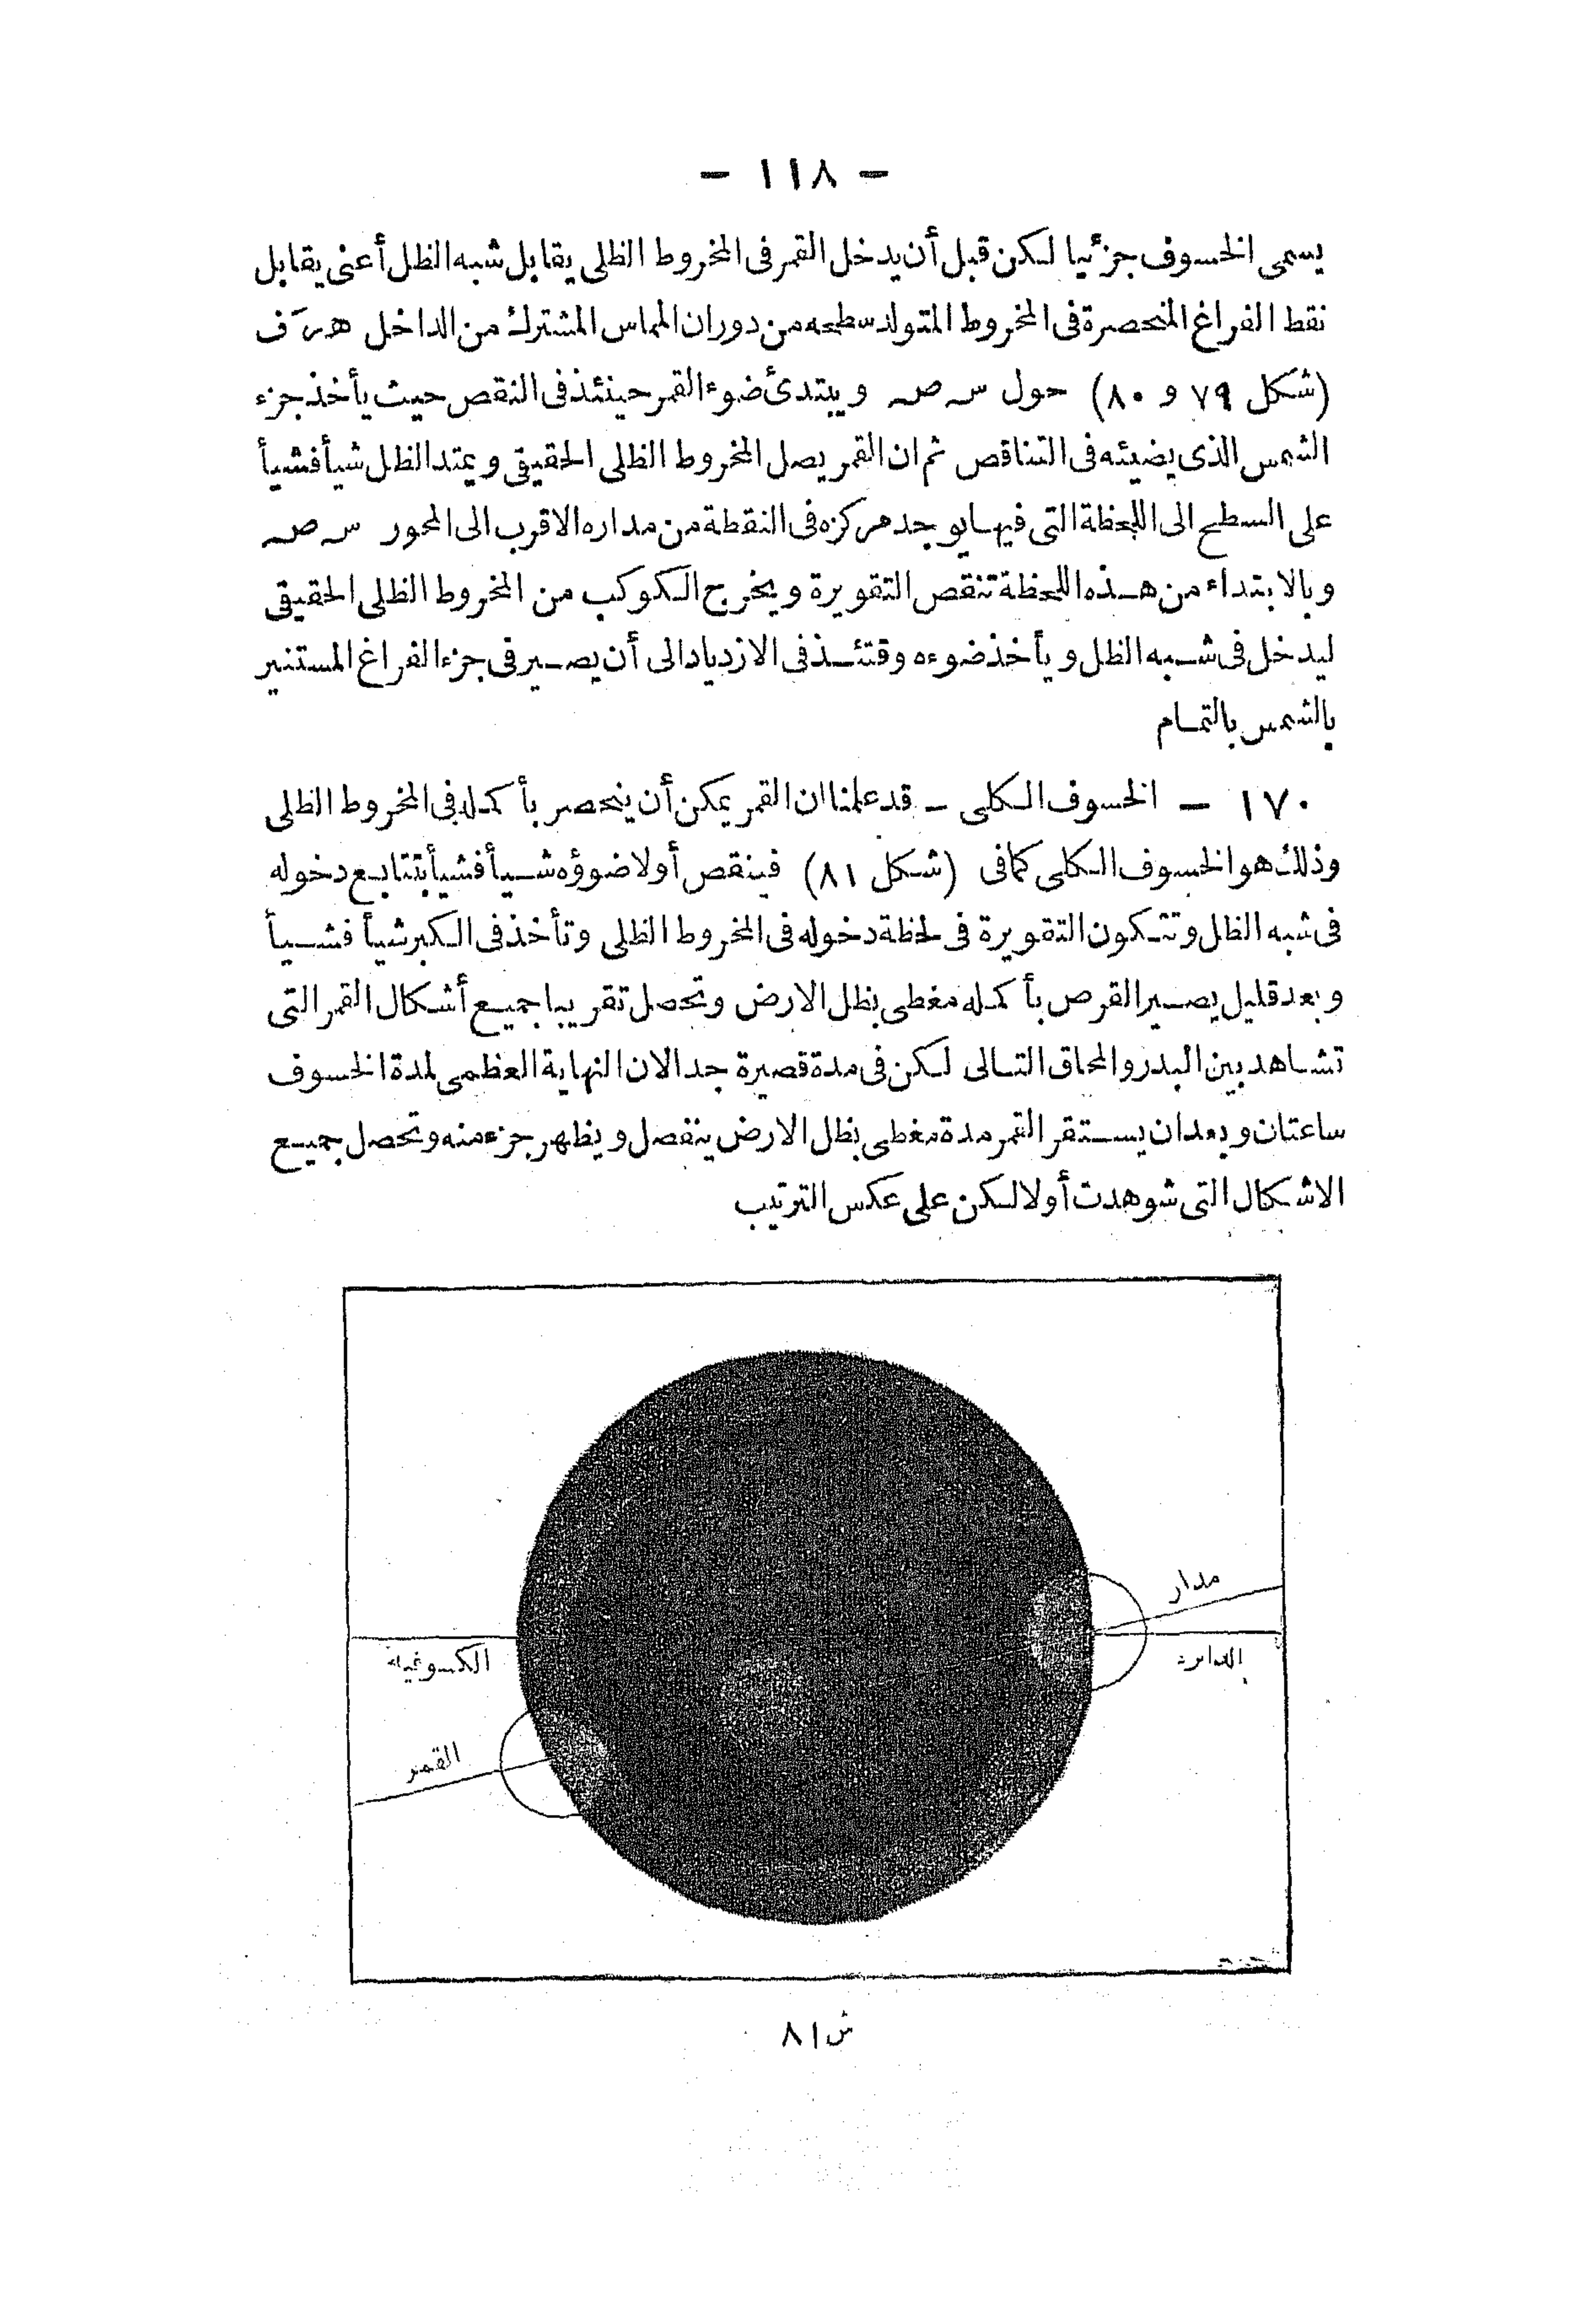 — ١١٨ —
يسمى الخسوف جزئيا لكن قبل أن يدخل القمر فى المخروط الظلى يقابل شبه الظل أعنى يقابل
نقط الفراغ المنحصرة فى المخروط المتولد سطحه من دوران المماس المشترك من الداخل
(شكل ٧٩ و ٨٠) حول س ص ويبتدئ ضوء القمر حينئذ فى النقص حيث يأخذ جزء
الشمس الذى يضيئه فى التناقص ثم ان القمر يصل المخروط الظلى الحقيقى ويمتد الظل شيأ فشيأ
على السطح الى اللحظة التى فيها يوجد مركزه فى النقطة من مداره الاقرب الى المحور س ص
وبالابتداء من هذه اللحظة تنقص التقويرة ويخرج الكوكب من المخروط الظلى الحقيقى
ليدخل فى شبه الظل ويأخذ ضوءه وقتئذ فى الازدياد الى أن يصير فى جزء الفراغ المستنير
بالشمس بالتمام
١٧٠ — الخسوف الكلى — قد علمنا ان القمر يمكن أن ينحصر بأكمله فى المخروط الظلى
وذلك هو الخسوف الكلى كما فى (شكل ٨١) فينقص أولا ضوؤه شيأ فشيأ بتتابع دخوله
فى شبه الظل وتتكون التقويرة فى لحظة دخوله فى المخروط الظلى وتأخذ فى الكبر شيأ فشيأ
وبعد قليل يصير القرص بأكمله مغطى بظل الارض وتحصل تقريبا جميع أشكال القمر التى
تشاهد بين البدر والمحاق التالى لكن فى مدة قصيرة جدا لان النهاية العظمى لمدة الخسوف
ساعتان وبعد ان يستقر القمر مدة مغطى بظل الارض ينفصل ويظهر جزء منه وتحصل جميع
الاشكال التى شوهدت أولا لكن على عكس الترتيب
مدار
الدايرة
الكسوفية
القمر
ش ٨١